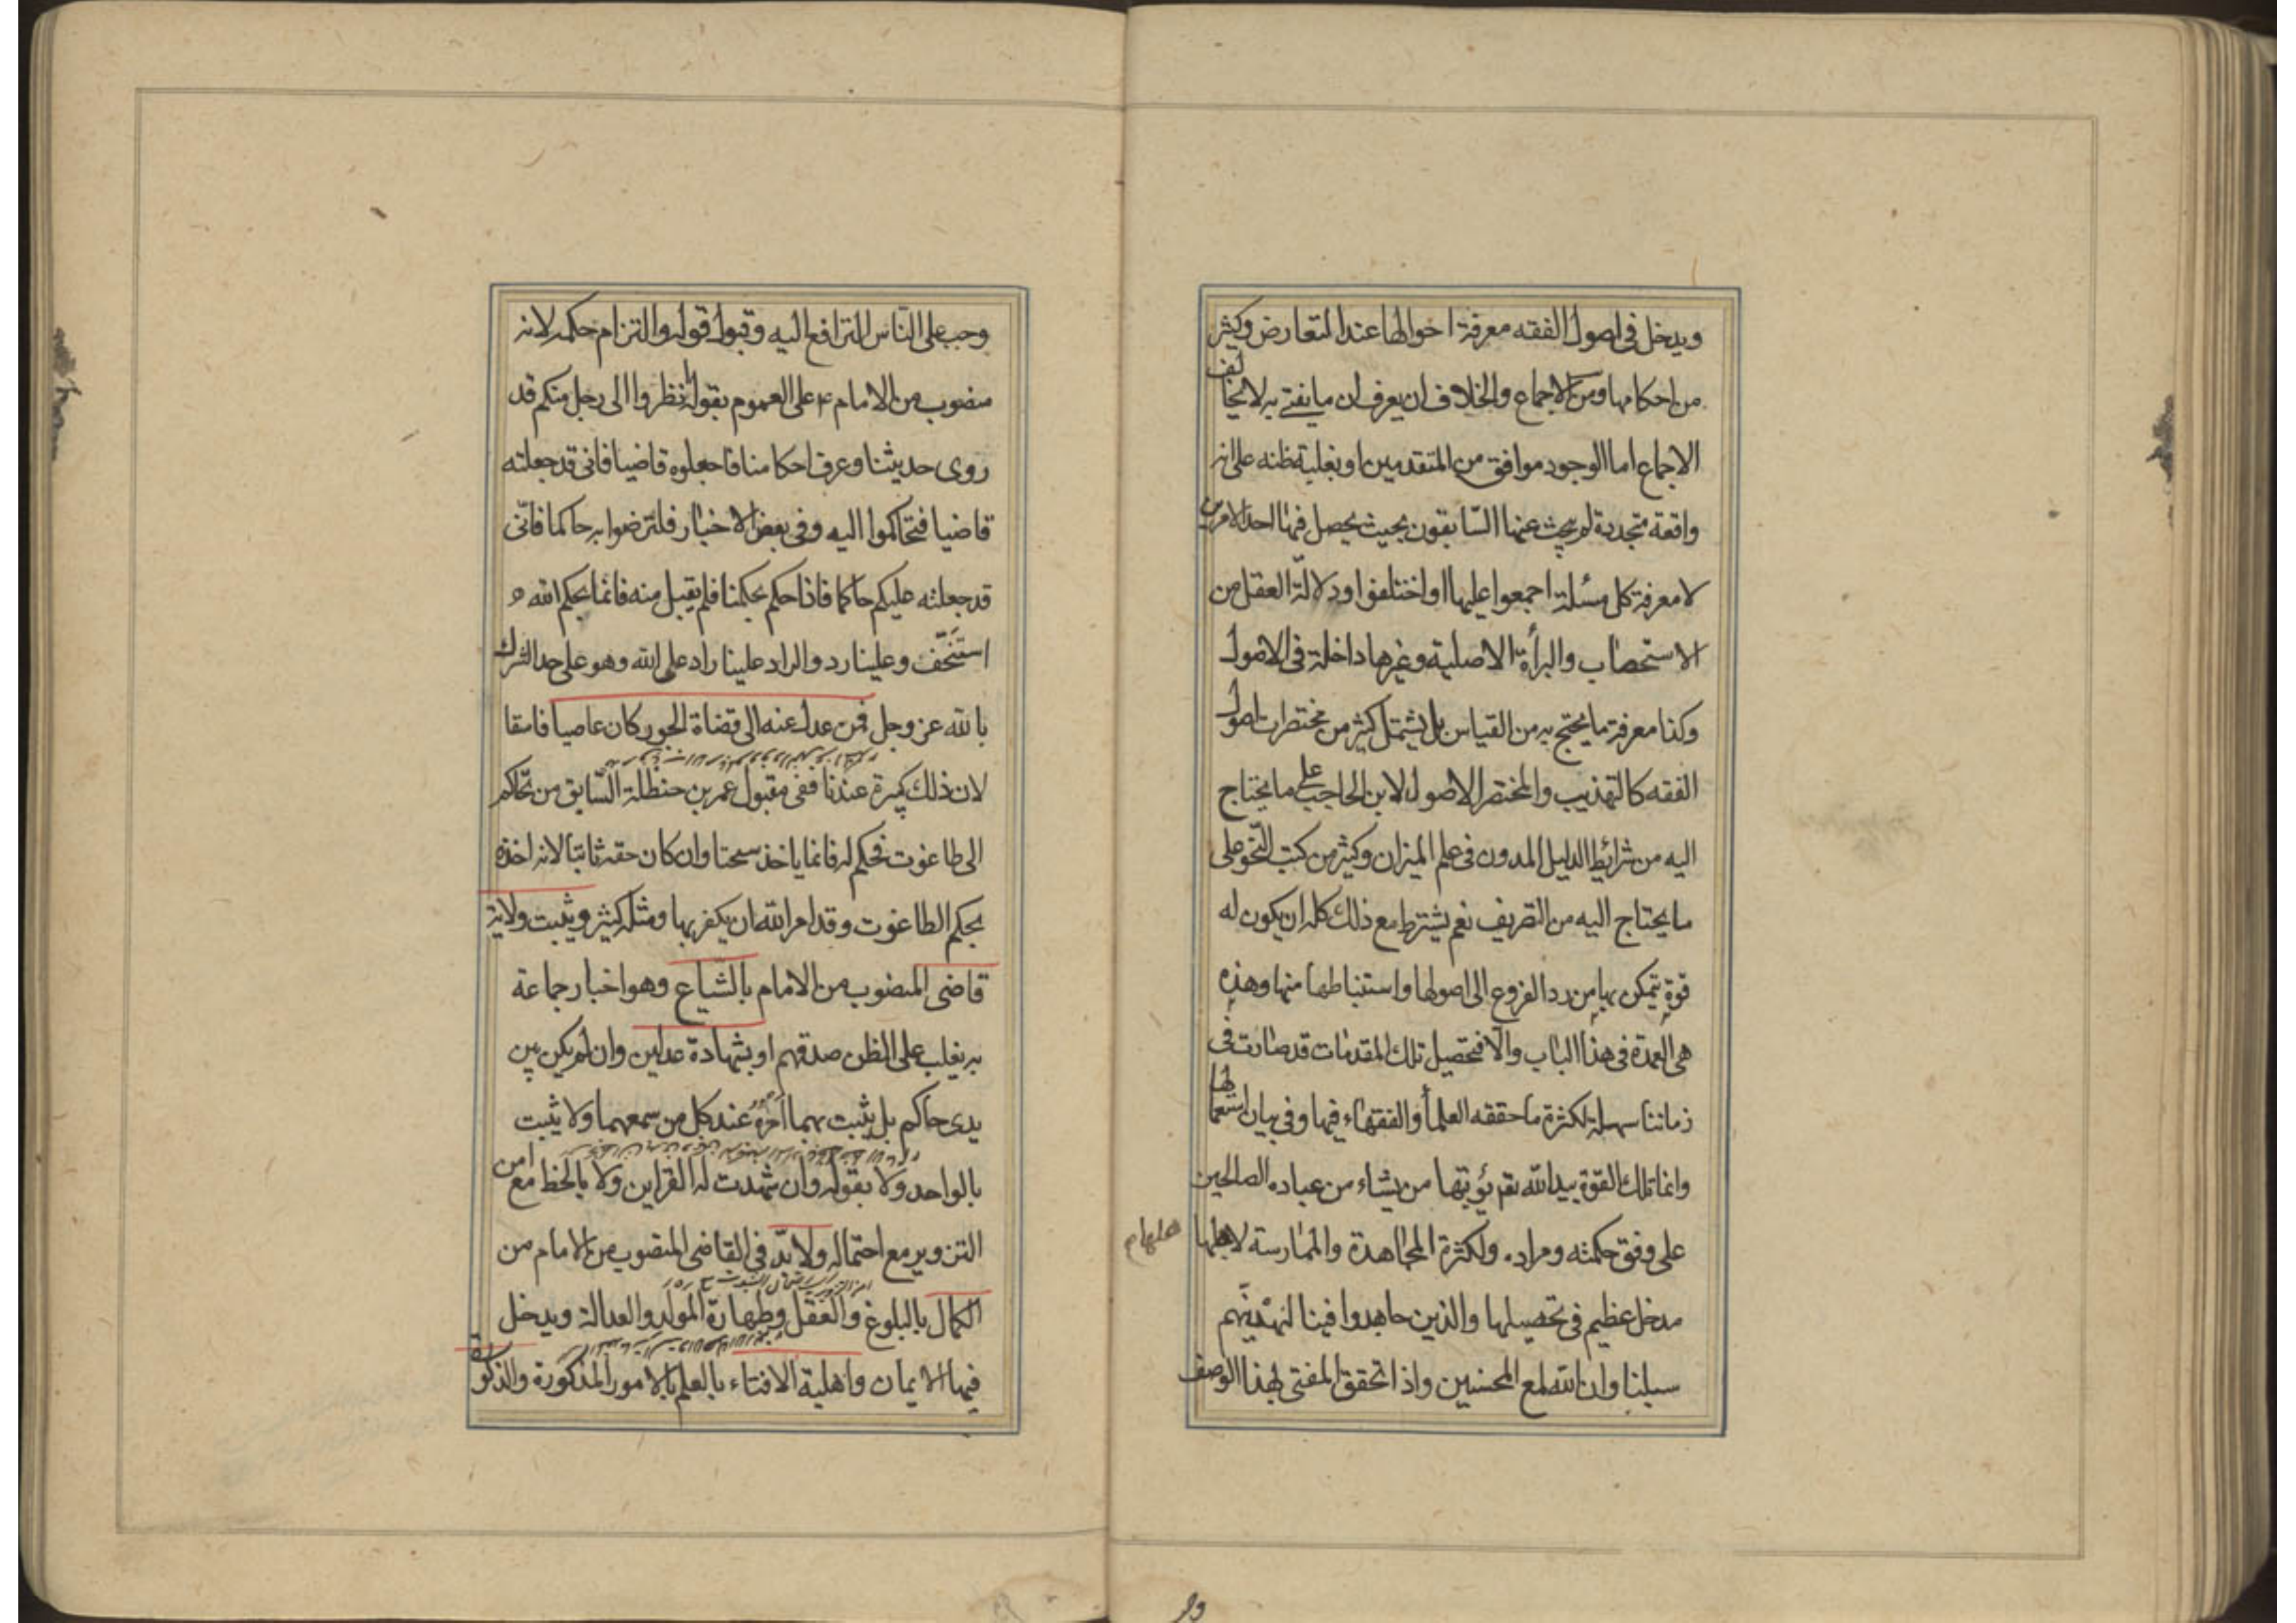 ويدخل فى اصول الفقه معرفة احوالها عند التعارض وكثير
من احكامها ومن الاجماع والخلاف ان يعرف ان ما يفتى به لا يخالف
الاجماع اما الوجود موافق من المتقدمين او بغلبة ظنه على انه
واقعة متجددة لم يبحث عنها السّابقون بحيث يحصل فيها احد الامرين
لا معرفة كل مسئلة اجمعوا عليها او اختلفوا ودلالة العقل من
الاستصحاب والبرأة الاصلية وغيرها داخلة فى الاصول
وكذا معرفة ما يحتج به من القياس بل يشتمل كثير من مختصرات اصول
الفقه كالتهذيب والمختصر الاصول لابن الحاجب على ما يحتاج
اليه من شرائط الدليل المدون فى علم الميزان وكثير من كتب النّحو على
ما يحتاج اليه من التصريف نعم يشترط مع ذلك كله ان يكون له
قوة يتمكن بها من رد الفروع الى اصولها واستنباطها منها وهذه
هى العمدة فى هذا الباب والّا فتحصيل تلك المقدمات قد صارت فى
زماننا سهلة لكثرة ما حققه العلمأ والفقهاء فيها وفى بيان استعمالها
وانما تلك القوة بيد الله تعم يؤتيها من يشاء من عباده الصالحين
على وفق حكمته ومراده ولكثرة المجاهدة والممارسة لاهلها
مدخل عظيم فى تحصيلها والذين جاهدوا فينا لنهدينّهم
سبلنا وان الله لمع المحسنين واذا تحقق المفتى بهذا الوصف
وجب
وجب على النّاس الترافع اليه وقبول قوله والتزام حكمه لانه
منصوب من الامام ع على العموم بقوله انظروا الى رجل منكم قد
روى حديثنا وعرف احكامنا فاجعلوه قاضيا فانى قد جعلته
قاضيا فتحاكموا اليه وفى بعض الاخبار فلترضوا به حاكما فانّى
قد جعلته عليكم حاكما فاذا حكم بحكمنا فلم يقبل منه فانما بحكم الله
استخفّ وعلينا رد والراد علينا راد على الله وهو على حد الشرك
بالله عز وجل فمن عدل عنه الى قضاة الجور كان عاصيا فاسقا
لان ذلك كبيرة عندنا ففى مقبول عمر بن حنظلة السّابق من تحاكم
الى طاغوت فحكم له فانما ياخذ سحتا وان كان حقه ثابتا لانه اخذه
بحكم الطاغوت وقد امر الله ان يكفر بها ومثله كثير ويثبت ولاية
قاضى المنصوب من الامام بالشّياع وهو اخبار جماعة
به يغلب على الظن صدقهم او بشهادة عدلين وان لم يكن بين
يدى حاكم بل يثبت بهما امره عند كل من سمعهما ولا يثبت
بالواحد ولا بقوله وان شهدت له القراين ولا بالخط مع امن
التزوير مع احتماله ولا بدّ فى القاضى المنصوب من الامام من
الكمال بالبلوغ والعقل وطهارة المولد والعدالة ويدخل
فيها الايمان واهلية الافتاء بالعلم بالامور المذكورة والذكورة